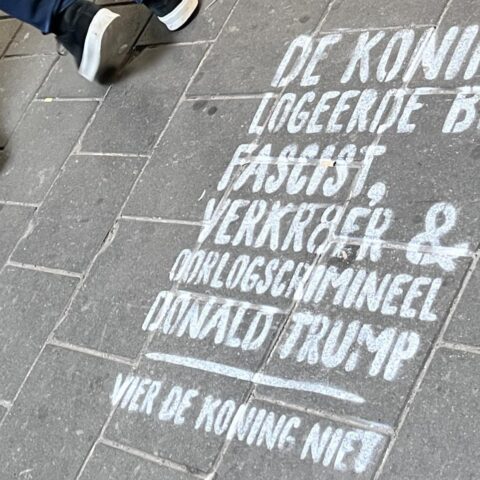 DE KONI
LOGEERDE B
FASCIST,
VERKR8ER &
OORLOGSCRIMINEEL
DONALD TRUMP
VIER DE KONING NIET